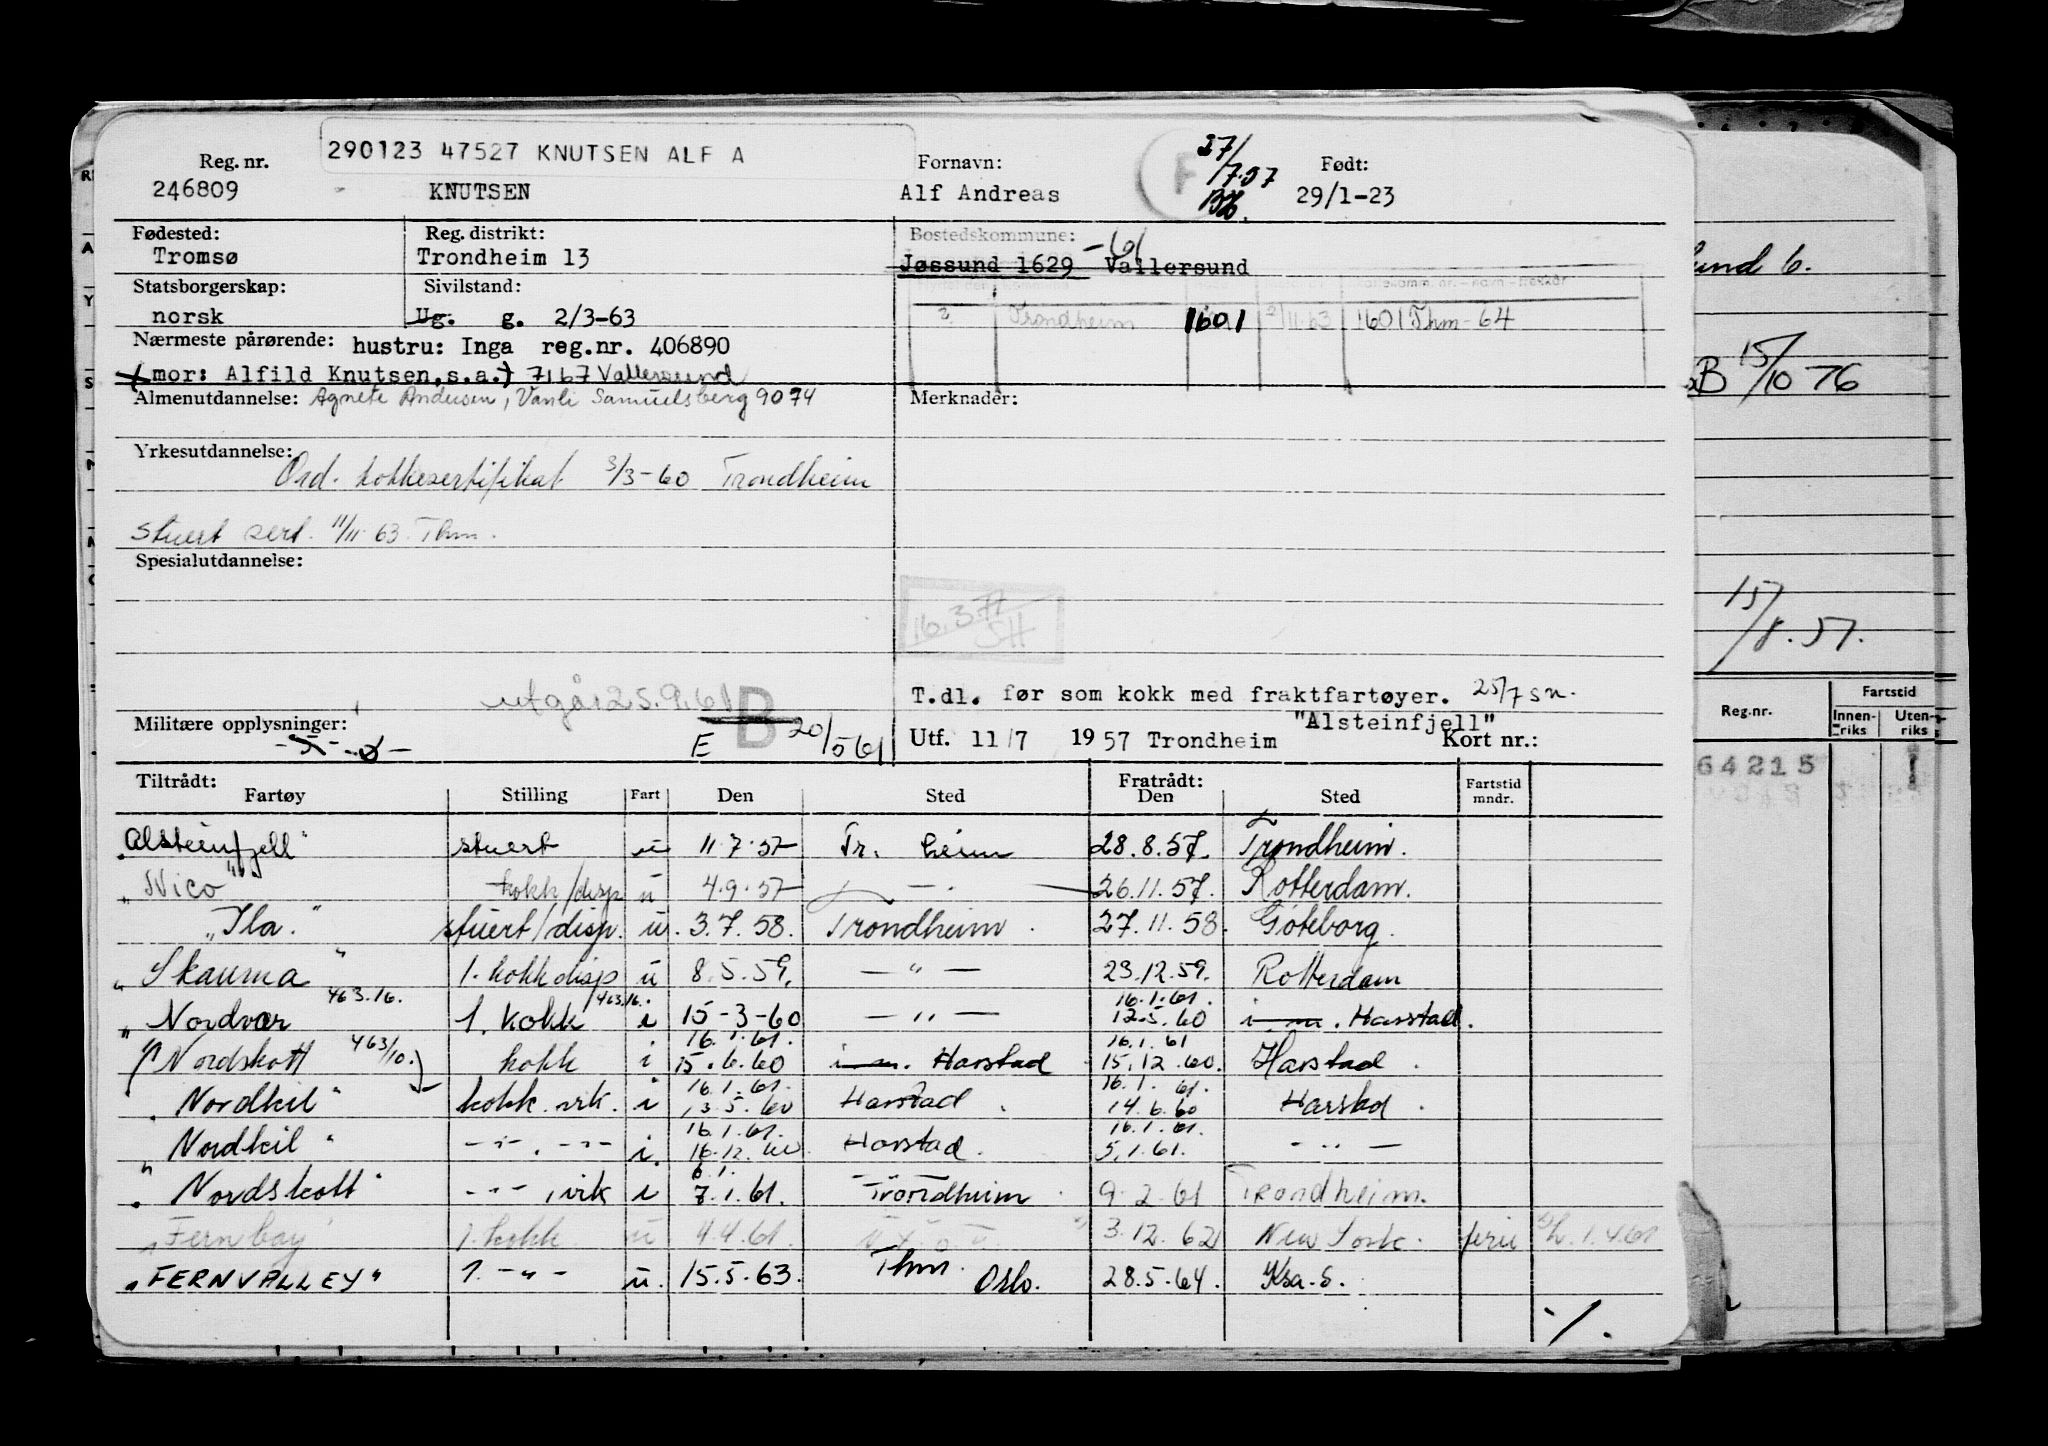 290123 47527 KNUTSEN ALF A
Reg. nr. Fornavn: F 27/7.57 Født:
246809 KNUTSEN Alf Andreas 29/1-23
Fødested: Reg. distrikt: Bostedskommune:
Tromsø Trondheim 13 Jøssund 1629 Vallersund -61
Statsborgerskap: Sivilstand:
norsk Ug. g. 2/3-63 Trondheim 1601 2/11.63 1601 Thm-64
Nærmeste pårørende: hustru: Inga reg.nr. 406890
(mor: Alfild Knutsen, s.a.) 7167 Vallersund
Almenutdannelse: Agnete Andersen, Vanli Samuelsberg 9074 Merknader:
Yrkesutdannelse:
Ord. kokkesertifikat 3/3-60 Trondheim
stuert sert. 11/11-63 Thm.
Spesialutdannelse:
16.3.77
SH
utgår 25.9.61 B T.dl. før som kokk med fraktfartøyer. 25/7 sn.
Militære opplysninger: E 20/5 61 "Alsteinfjell"
Utf. 11/7 1957 Trondheim Kort nr.:
Tiltrådt: Fratrådt: Fartstid
Fartøy Stilling Fart Den Sted Den Sted mndr.
"Alsteinfjell" stuert u 11.7.57 Tr.heim 28.8.57. Trondheim.
"Nico" kokk/disp u 4.9.57 — " — 26.11.57. Rotterdam.
"Ila." stuert/disp. u. 3.7.58. Trondheim. 27.11.58. Göteborg.
"Skauma" 1. kokk disp u 8.5.59. — " — 23.12.59. Rotterdam
463.16. 463.16. 16.1.61.
"Nordvar 1. kokk i 15-3-60 — " — 12.5.60 i m. Harstad.
16.1.61. 16.1.61
"Nordskott 463/10. kokk i 15.6.60 i m. Harstad 15.12.60. Harstad.
16.1.61. 16.1.61.
"Nordkil" kokk. vik. i 13.5.60 Harstad. 14.6.60 Harstad.
16.1.61. 16.1.61.
"Nordkil" -"- . -"- i. 16.12.60 Harstad. 5.1.61. - " -
6.1.
"Nordskott" -"- , vik i 7.1.61. Trondheim. 9.2.61 Trondheim.
"Fernbay 1. kokk u 4.4.61. 3.12.62 New York. ferie 1.4.61
"FERNVALLEY" 1. -"- u. 15.5.63. Thm. Oslo. 28.5.64. Ksa.S.
·/.
und 6.
B 15/10 76
15/8.57.
Fartstid
Reg.nr. Innen-riks Uten-riks
64215